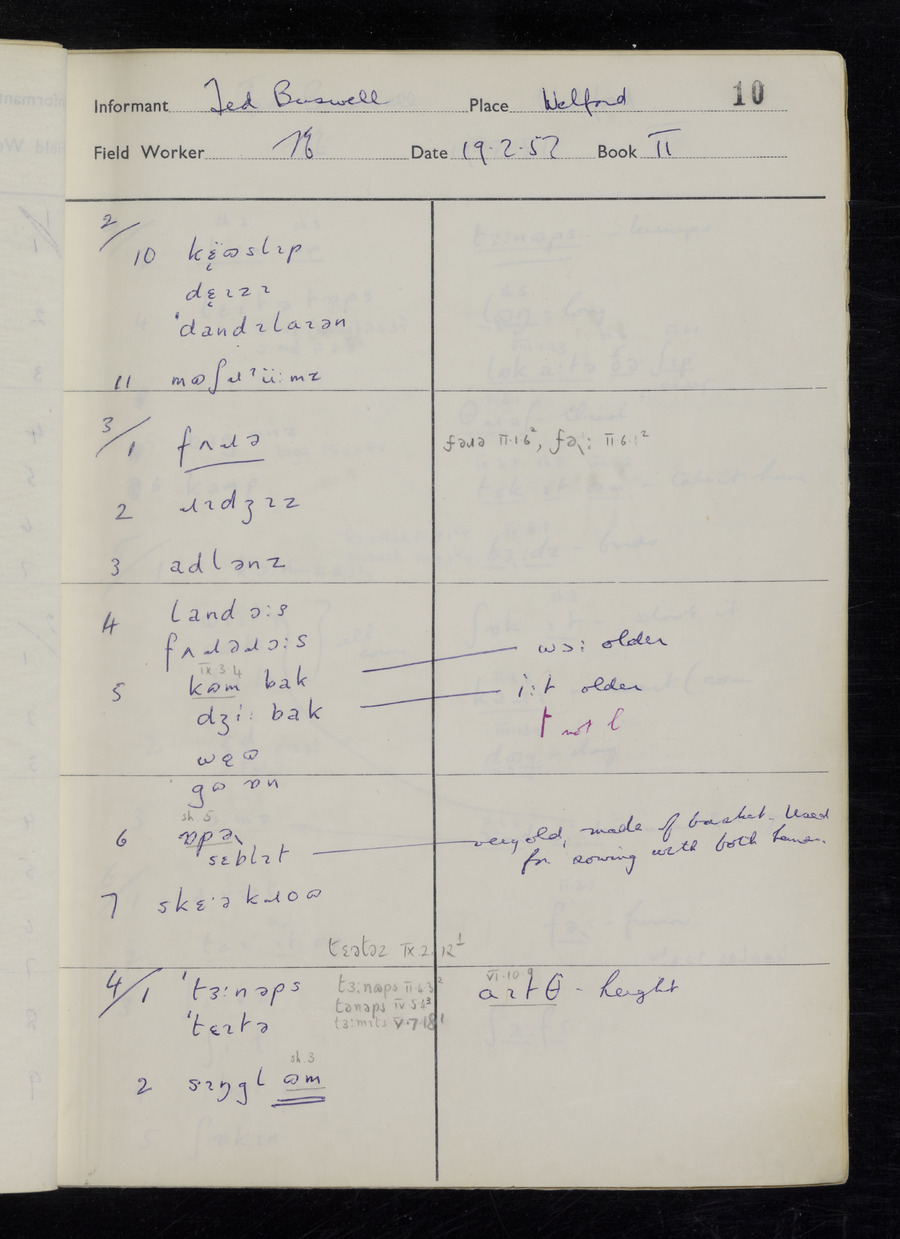 Informant Ted Buswell Place Welford 10
Field Worker Date 19·2·57 Book II
2/
10 kɛ̈ɷslɪp
dɛɪzɪ
ˈdandɪlaɪən
11 mɷʃɹɪü:mz
3/
1 fʌɹə fəɹə II·1·6², fə: II·6·1²
2 ɹɪdʒɪz
3 adlənz
4 landɔ:s
fʌɹəɹɔ:s
wɔ: older
IX·3·4
5 kɷm bak
i:t older
dʒi: bak
t not l
wɛɷ
gɷ ɒn
sh. 5
6 ɒpə
very old, made of basket. Used
sɛblɪt
for sowing with both
7 skɛ·əkɹoɷ
tɛətəz IX.2.12¹
4/
1 ˈtɜ:nəps tɜ:nəps II·6·3² VI·10·9
tənəps IV 5 4³ aɪtθ - height
ˈtɛɪtə tɜ:mɪts V·7·18¹
sh. 3
2 sɪŋgl ɷm